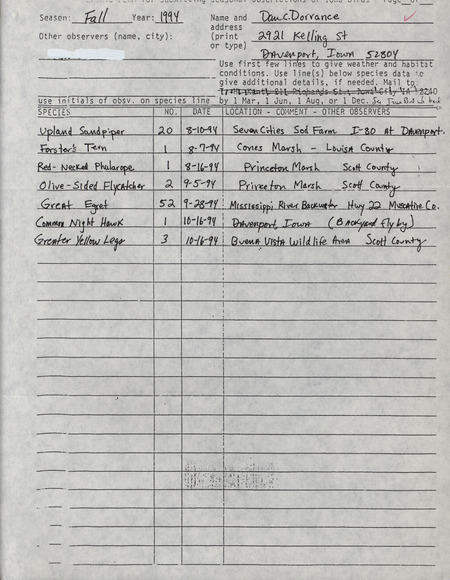 form for submitting seasonal observations of Iowa birds Page of
Season: Fall Year: 1994 Name and Dan C. Dorrance
address 2921 Kelling St
Other observers (name, city): (print
or type) Davenport, Iowa 52804
Use first few lines to give weather and habitat
conditions. Use line(s) below species data to
give additional details, if needed. Mail to
use initials of obsv. on species line by 1 Mar, 1 Jun, 1 Aug, or 1 Dec.
SPECIES NO. DATE LOCATION - COMMENT - OTHER OBSERVERS
Upland Sandpiper 20 8-10-94 Seven Cities Sod Farm I-80 at Davenport.
Forster's Tern 1 8-7-94 Cones Marsh - Louisa County
Red-Necked Phalarope 1 8-16-94 Princeton Marsh Scott County
Olive-Sided Flycatcher 2 9-5-94 Princeton Marsh Scott County
Great Egret 52 9-28-94 Mississippi River Backwater Hwy 22 Muscatine Co.
Common Night Hawk 1 10-16-94 Davenport, Iowa (Backyard fly by)
Greater Yellow Legs 3 10-16-94 Buena Vista Wildlife Area Scott County